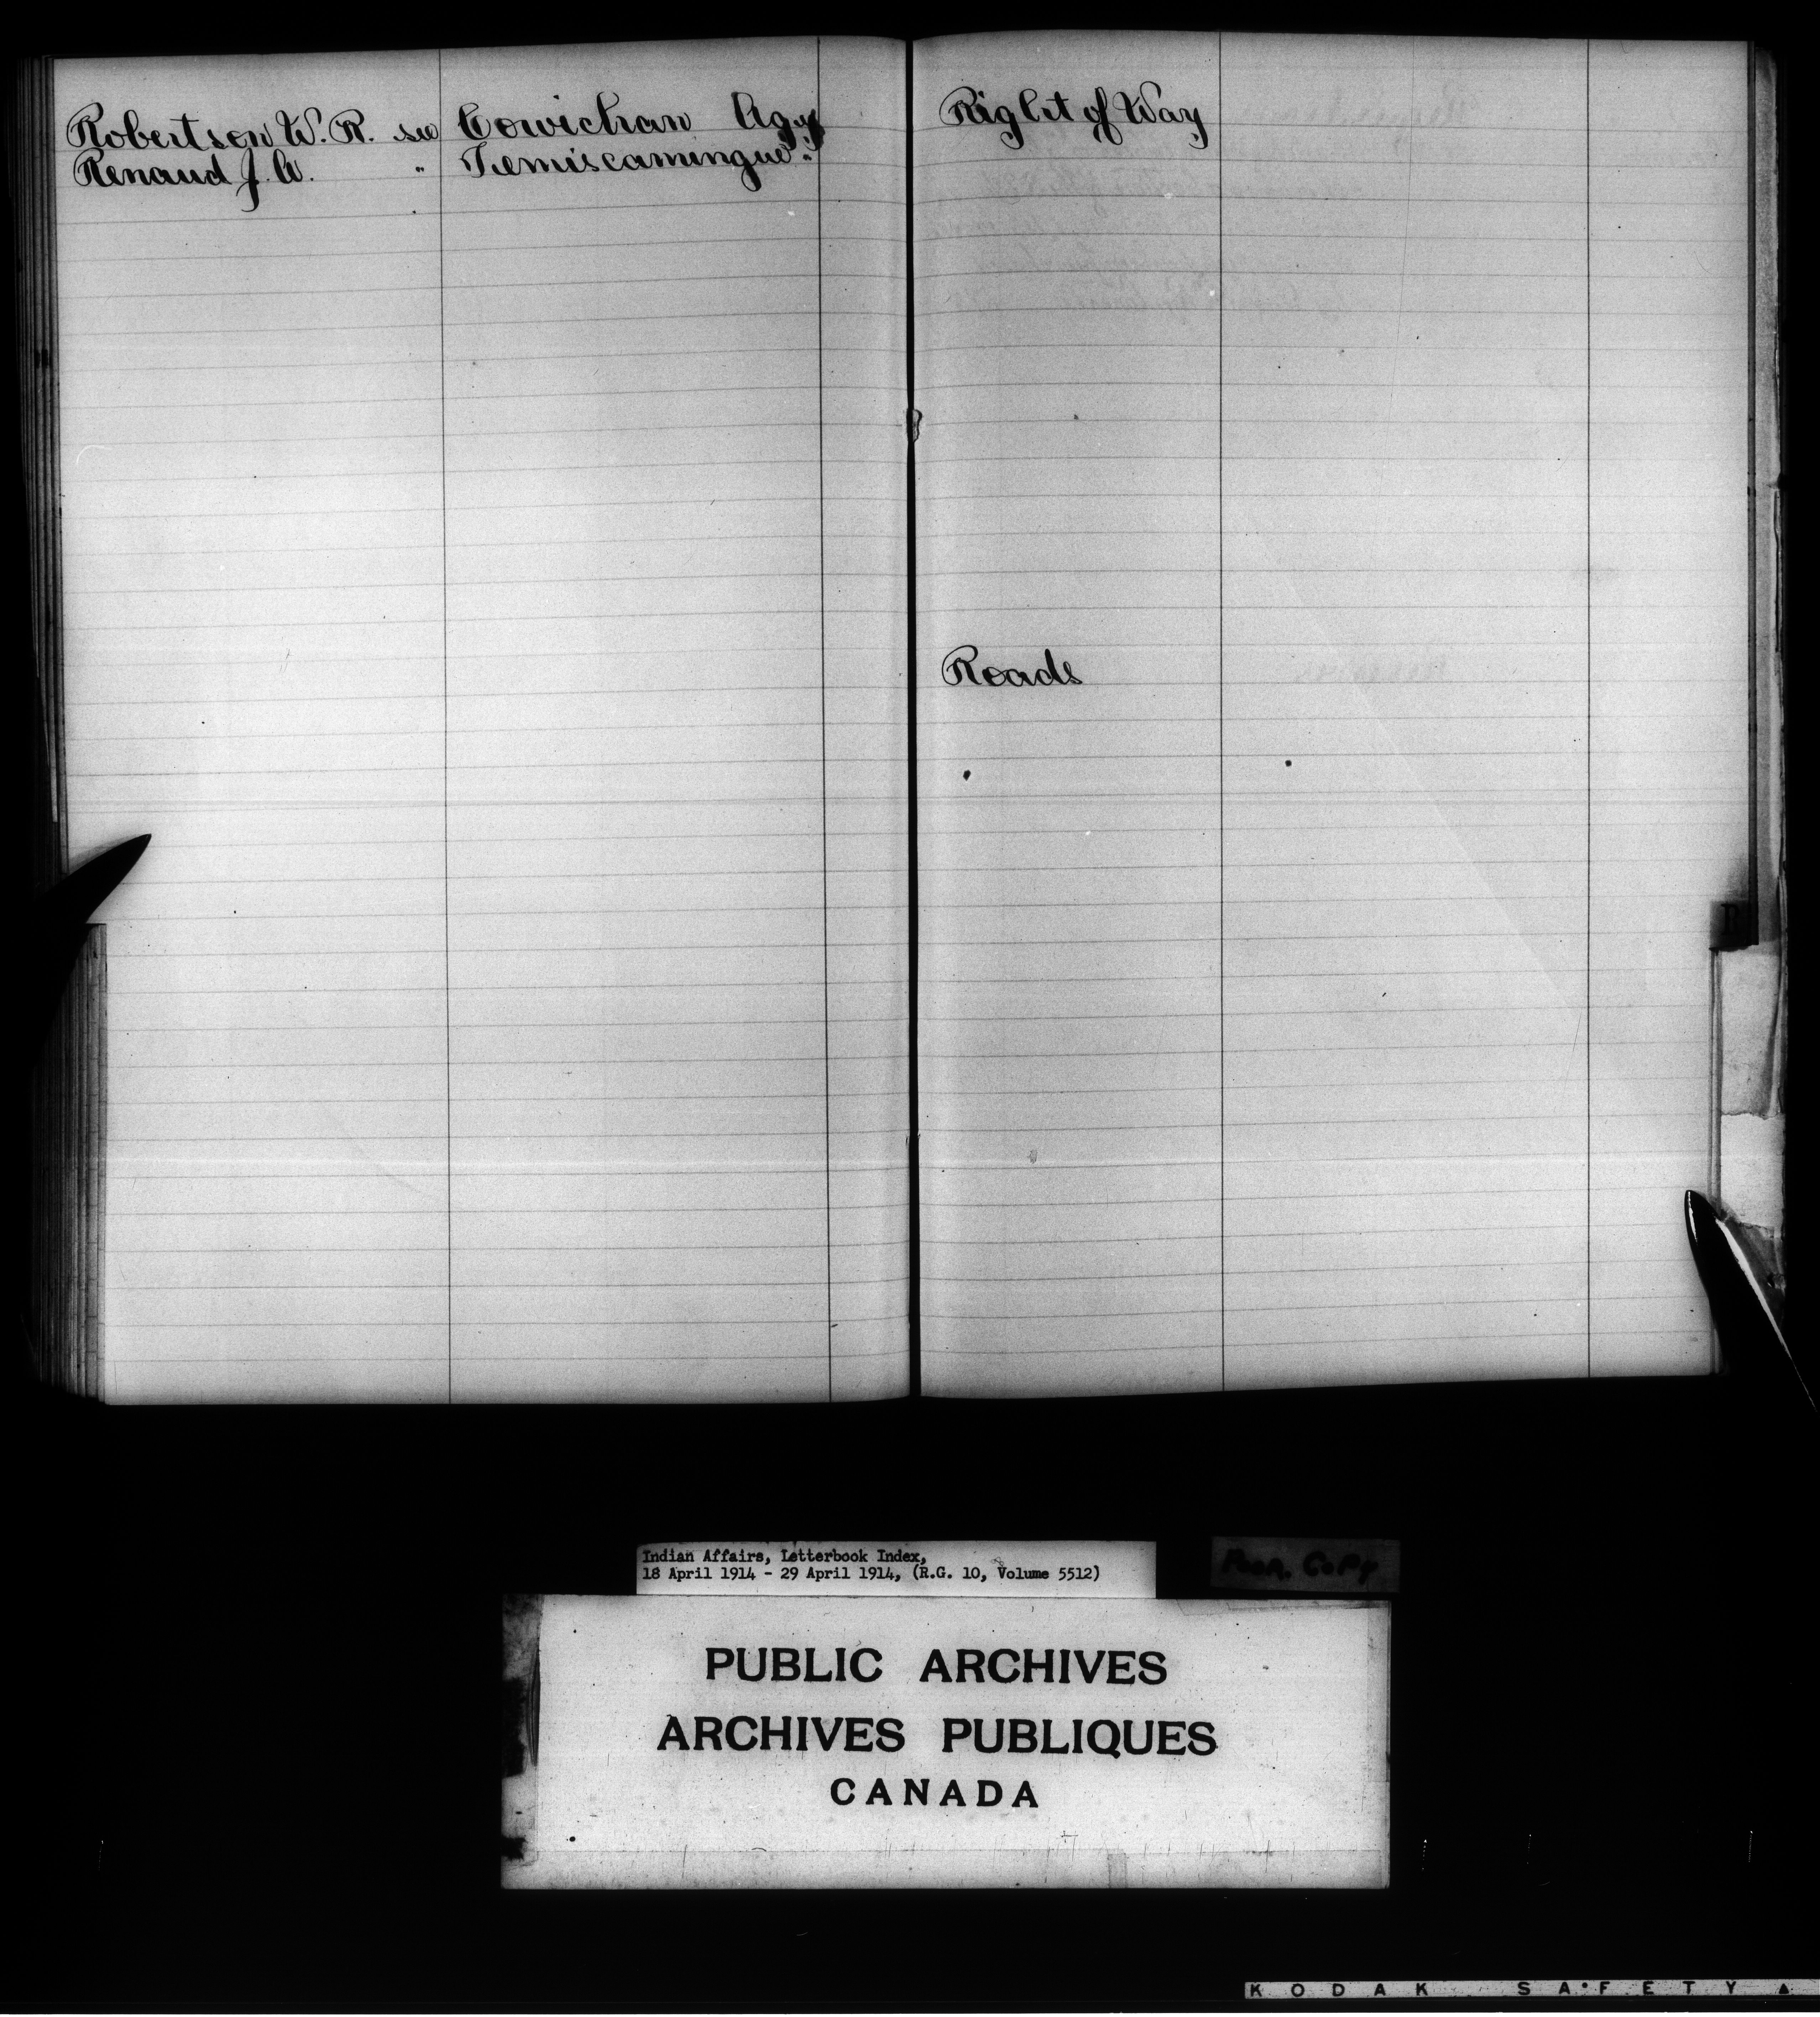 Robertson W. R. see Cowichan Agcy
Renaud J. A. " Temiscamingue "
Right of Way
Roads
R
Indian Affairs, Letterbook Index,
18 April 1914 - 29 April 1914, (R.G. 10, Volume 5512)
POOR COPY
PUBLIC ARCHIVES
ARCHIVES PUBLIQUES
CANADA
KODAK SAFETY